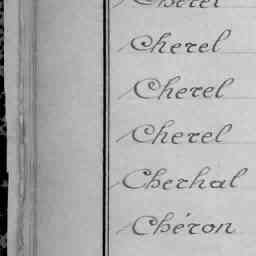 Cherel
Cherel
Cherel
Cherel
Cherhal
Chéron